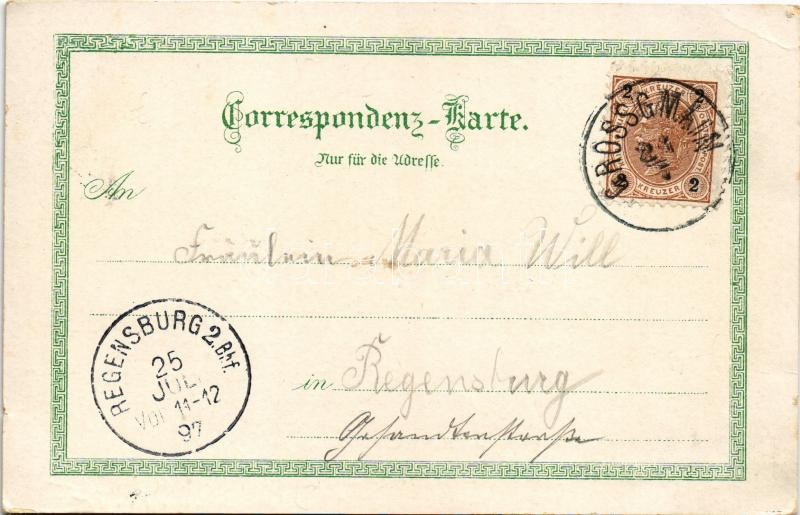 Correspondenz-Karte.
Nur für die Adresse.
An
Fräulein Maria Will
in Regensburg
Gesandtenstraße
GROSSGMAIN
2 KREUZER 2
REGENSBURG 2.Bhf.
25
JUL.
Vor 11-12
97